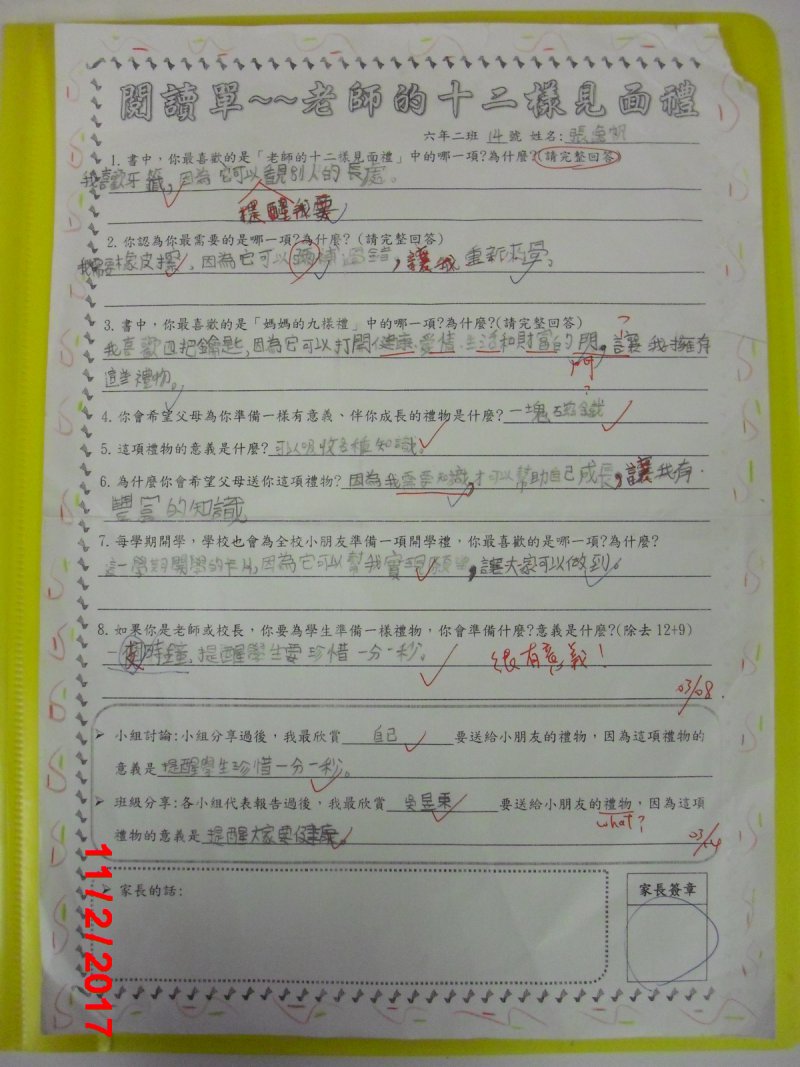 閱讀單~~老師的十二樣見面禮
六年二班 14號 姓名:張
1. 書中，你最喜歡的是「老師的十二樣見面禮」中的哪一項?為什麼?(請完整回答)
我喜歡牙籤，因為它可以看見別人的長處。
提醒我要
2. 你認為你最需要的是哪一項?為什麼?(請完整回答)
我需要橡皮擦，因為它可以彌補過錯，讓我重新來學。
3. 書中，你最喜歡的是「媽媽的九樣禮」中的哪一項?為什麼?(請完整回答)
我喜歡四把鑰匙，因為它可以打開健康、愛情、生活和財富的門，讓我擁有
這些禮物。
4. 你會希望父母為你準備一樣有意義、伴你成長的禮物是什麼? 一塊磁鐵
5. 這項禮物的意義是什麼? 可以吸收各種知識。
6. 為什麼你會希望父母送你這項禮物? 因為我需要知識，才可以幫助自己成長，讓我有
豐富的知識
7. 每學期開學，學校也會為全校小朋友準備一項開學禮，你最喜歡的是哪一項?為什麼?
這一學期開學的卡片，因為它可以幫我實現願望，讓大家可以做到。
8. 如果你是老師或校長，你要為學生準備一樣禮物，你會準備什麼?意義是什麼?(除去12+9)
時鐘，提醒學生要珍惜一分一秒。
很有意義!
03/08
➤ 小組討論:小組分享過後，我最欣賞 自己 要送給小朋友的禮物，因為這項禮物的
意義是 提醒學生珍惜一分一秒。
➤ 班級分享:各小組代表報告過後，我最欣賞 吳昱東 要送給小朋友的禮物，因為這項
what?
禮物的意義是 提醒大家要健康。
03/14
➤ 家長的話:
家長簽章
11/2/2017